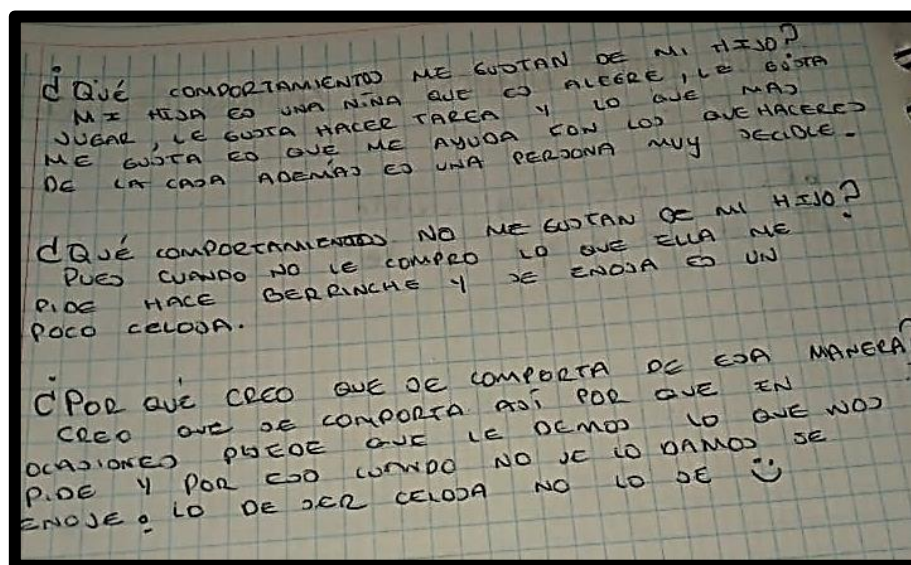 ¿Qué COMPORTAMIENTOS ME GUSTAN DE MI HIJO?
MI HIJA ES UNA NIÑA QUE ES ALEGRE, LE GUSTA
JUGAR, LE GUSTA HACER TAREA Y LO QUE MAS
ME GUSTA ES QUE ME AYUDA CON LOS QUEHACERES
DE LA CASA ADEMÁS ES UNA PERSONA MUY SECIBLE.
¿Qué COMPORTAMIENTOS NO ME GUSTAN DE MI HIJO?
PUES CUANDO NO LE COMPRO LO QUE ELLA ME
PIDE HACE BERRINCHE Y SE ENOJA ES UN
POCO CELOSA.
¿POR QUÉ CREO QUE SE COMPORTA DE ESA MANERA?
CREO QUE SE COMPORTA ASÍ POR QUE EN
OCASIONES PUEDE QUE LE DEMOS LO QUE NOS
PIDE Y POR ESO CUANDO NO SE LO DAMOS SE
ENOJE. LO DE SER CELOSA NO LO SE